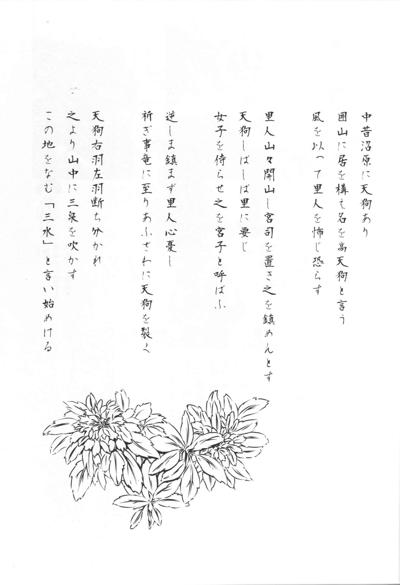 中昔沼原に天狗あり
囲山に居を構え名を高天狗と言う
風を以って里人を怖じ恐らす
里人山々開山し宮司を置き之を鎮めんとす
天狗しばしば里に要じ
女子を侍らせ之を宮子と呼ばふ
逆しま鎮まず里人心憂し
祈ぎ事竜に至りあふさわに天狗を裂く
天狗右羽左羽断ち外かれ
之より山中に三泉を吹かす
この地をなむ「三水」と言い始めける